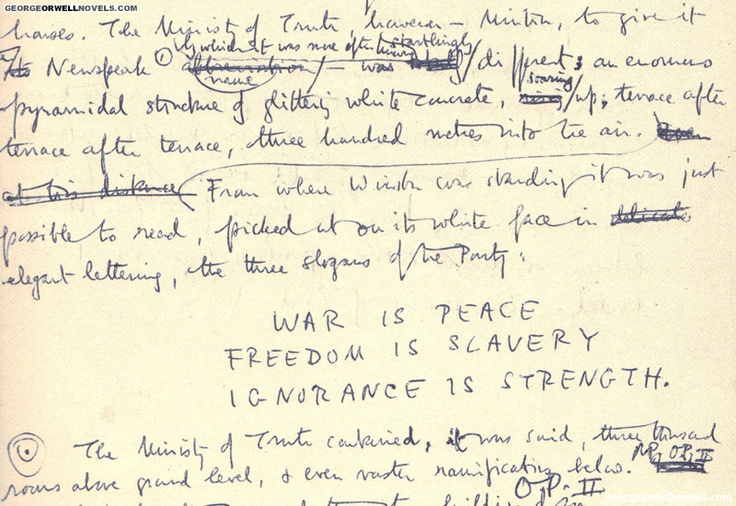 GEORGEORWELLNOVELS.COM
houses. The Ministry of Truth, however – Minitru, to give it
by which it was more often startlingly
its Newspeak abbreviation name – was different; an enormous
soaring
pyramidal structure of glittering white concrete, rising up, terrace after
terrace after terrace, three hundred metres into the air. Even
at this distance From where Winston was standing it was just
possible to read, picked out on its white face in delicate
elegant lettering, the three slogans of the Party:
WAR IS PEACE
FREEDOM IS SLAVERY
IGNORANCE IS STRENGTH.
The Ministry of Truth contained, it was said, three thousand
rooms above ground level, & even vaster ramifications below.
georgeorwellnovels.com